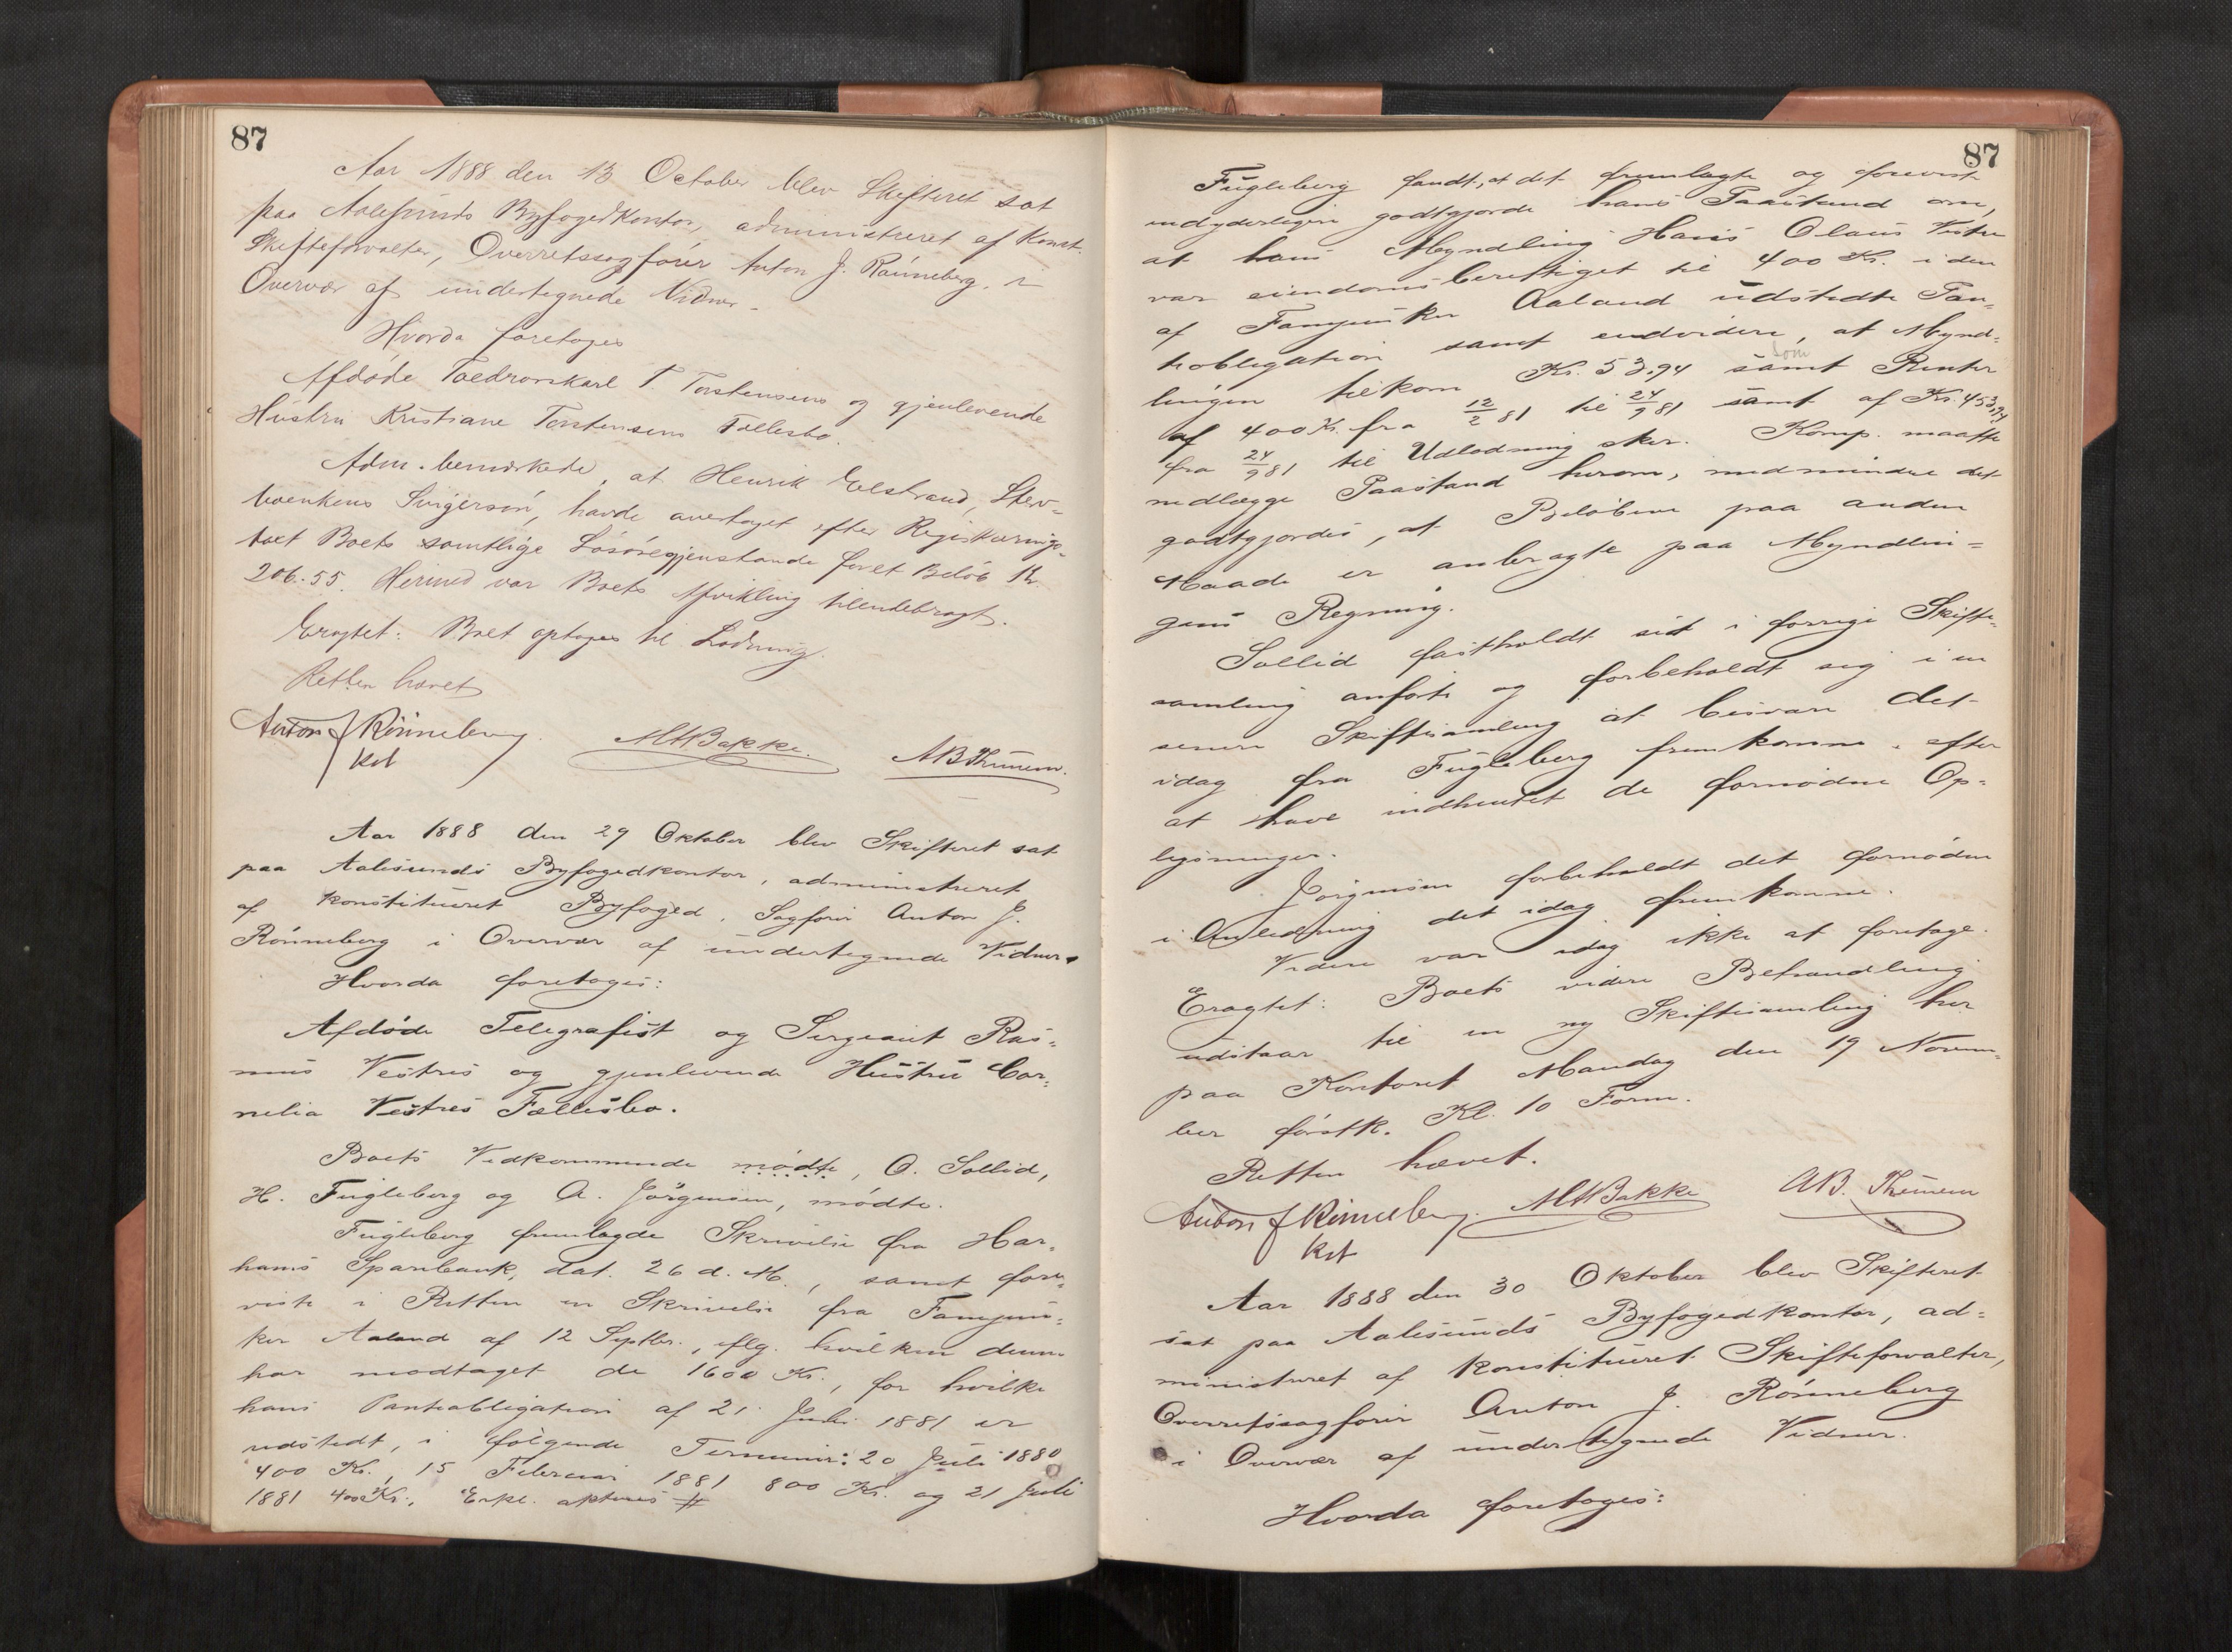 87
Aar 1888 den 13 October blev Skifteret sat
paa Aalesunds Byfogedkontor, administreret af Konst.
Skifteforvalter, Overretssagfører Anton J. Rønneberg, i
Overvær af undertegnede Vidner.
Hvorda foretoges
Afdøde Torstensens og gjenlevende
Hustru Kristiane Torstensens Fællesbo.
Adm. bemærkede, at Henrik Elstrand, Sterv-
boenkens Svigersøn, havde overtaget efter Registrerings-
taxt Boets samtlige Løsøregjenstande for et Beløb Kr.
206.55. Hermed var Boets Afvikling tilendebragt.
Eragtet: Boet optages til Lodning.
Retten hævet
Anton J Rønneberg. MABakke. AB Thunem.
kst
Aar 1888 den 29 Oktober blev Skifteret sat
paa Aalesunds Byfogedkontor, administreret
af konstitueret Byfoged, Sagfører Anton J.
Rønneberg i Overvær af undertegnede Vidner.
Hvorda foretoges:
Afdøde Telegrafist og Sergeant Ras-
mus Vestres og gjenlevende Hustru Cor-
nelia Vestres Fællesbo.
Boets Vedkommende mødte, O. Sollid,
H. Fugleberg og A. Jørgensen, mødte.
Fugleberg fremlagde Skrivelse fra Har-
hams Sparebank, dat. 26 d. M., samt fore-
viste i Retten en Skrivelse fra Fanejun-
ker Aaland af 12 Septbr., iflg. hvilken denne
har modtaget de 1600 Kr., for hvilke
hans Panteobligation af 21 Juli 1881 er
udstedt, i følgende Terminer: 20 Juli 1880
400 Kr., 15 Februar 1881 800 Kr. og 21 Juli
1881 400 Kr.,
87
Fugleberg fandt, at det fremlagte og foreviste
yderligere godtgjorde hans Paastand om,
at hans Myndling Hans Olaus Vestre
var eiendomsberettiget til 400 Kr. i den
af Fanejunker Aaland udstedte Pan-
teobligation samt endvidere, at Mynd-
som
lingen tilkom Kr. 53,94 samt Renter
af 400 Kr. fra 12/2 81 til 24/9 81 samt af Kr. 453,94
fra 24/9 81 til Udlodning sker. Komp. maatte
nedlægge Paastand herom, medmindre det
godtgjordes, at Beløbene paa anden
Maade er anbragte paa Myndlin-
gens Regning.
Sollid fastholdt sit i forrige Skifte-
samling anførte og forbeholdt sig i en
senere Skiftesamling at besvare det
idag fra Fugleberg fremkomne, efter
at have indhentet de fornødne Op-
lysninger.
Jørgensen forbeholdt det fornødne
i Anledning det idag fremkomne.
Videre var idag ikke at foretage.
Eragtet: Boets videre Behandling
udstaar til en ny Skiftesamling her
paa Kontoret Mandag den 19 Novem-
ber førstk. Kl. 10 Form.
Retten hævet.
Anton J Rønneberg. MABakke AB. Thunem
kst
Aar 1888 den 30 Oktober blev Skifteret
sat paa Aalesunds Byfogedkontor, ad-
ministreret af konstitueret Skifteforvalter,
Overretssagfører Anton J. Rønneberg
i Overvær af undertegnede Vidner.
Hvorda foretoges: